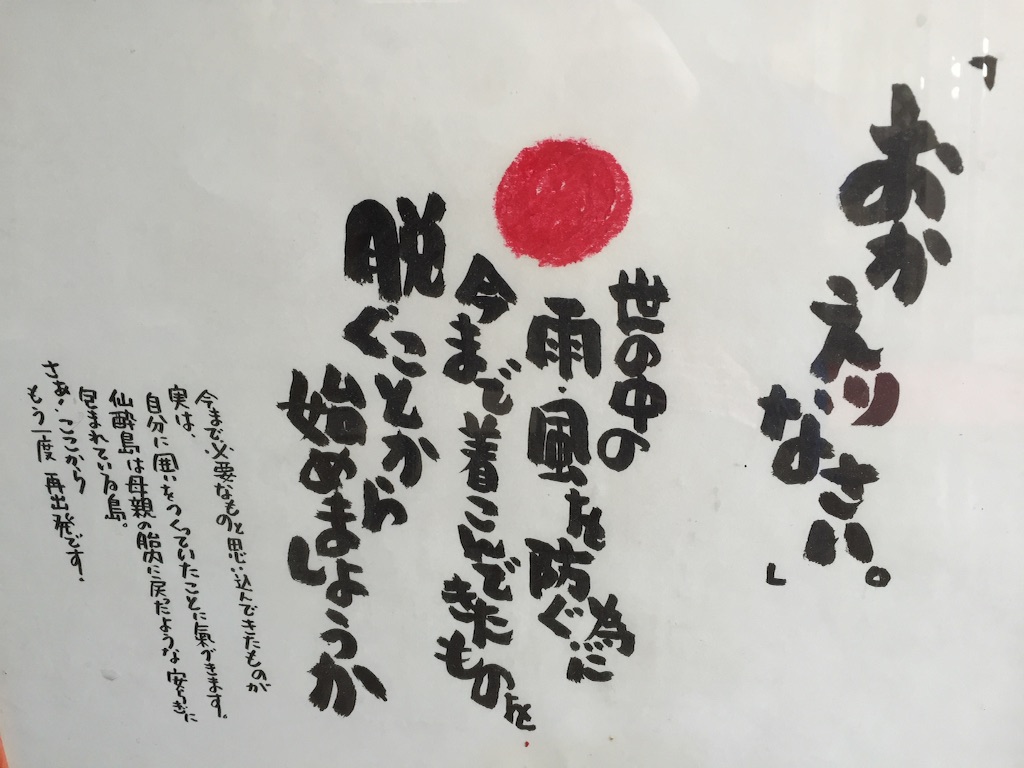 「おかえりなさい。」
世の中の
雨・風を防ぐ為に
今まで着こんできたものを
脱ぐことから
始めましょうか
今まで必要なものと思い込んできたものが
実は、
自分に囲いをつくっていたことに氣づきます。
仙酔島は母親の胎内に戻だような安らぎに
包まれている島。
さあ!ここから
もう一度 再出発です!